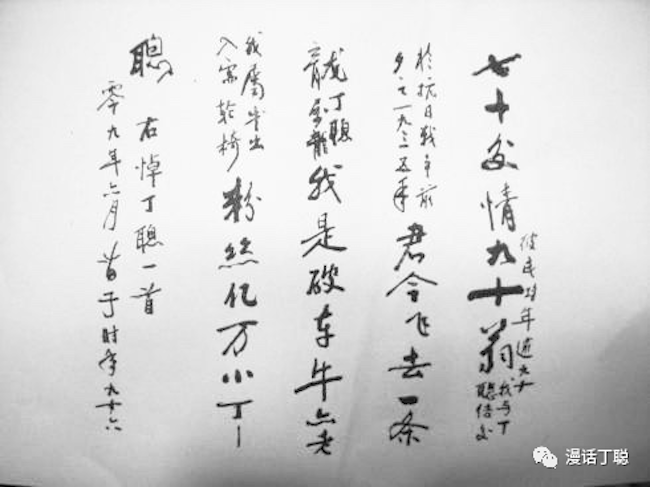 七十交情九十翁
彼此均年近九十
我与丁
聪结交
於抗日战争前
夕之一九三五年
君今飞去一条
龙
丁聪
属龙
我是破车牛亦老
我属牛出
入乘轮椅
粉丝亿万小丁
聪
右悼丁聪一首
零九年六月 苗子时年九十六
漫话丁聪